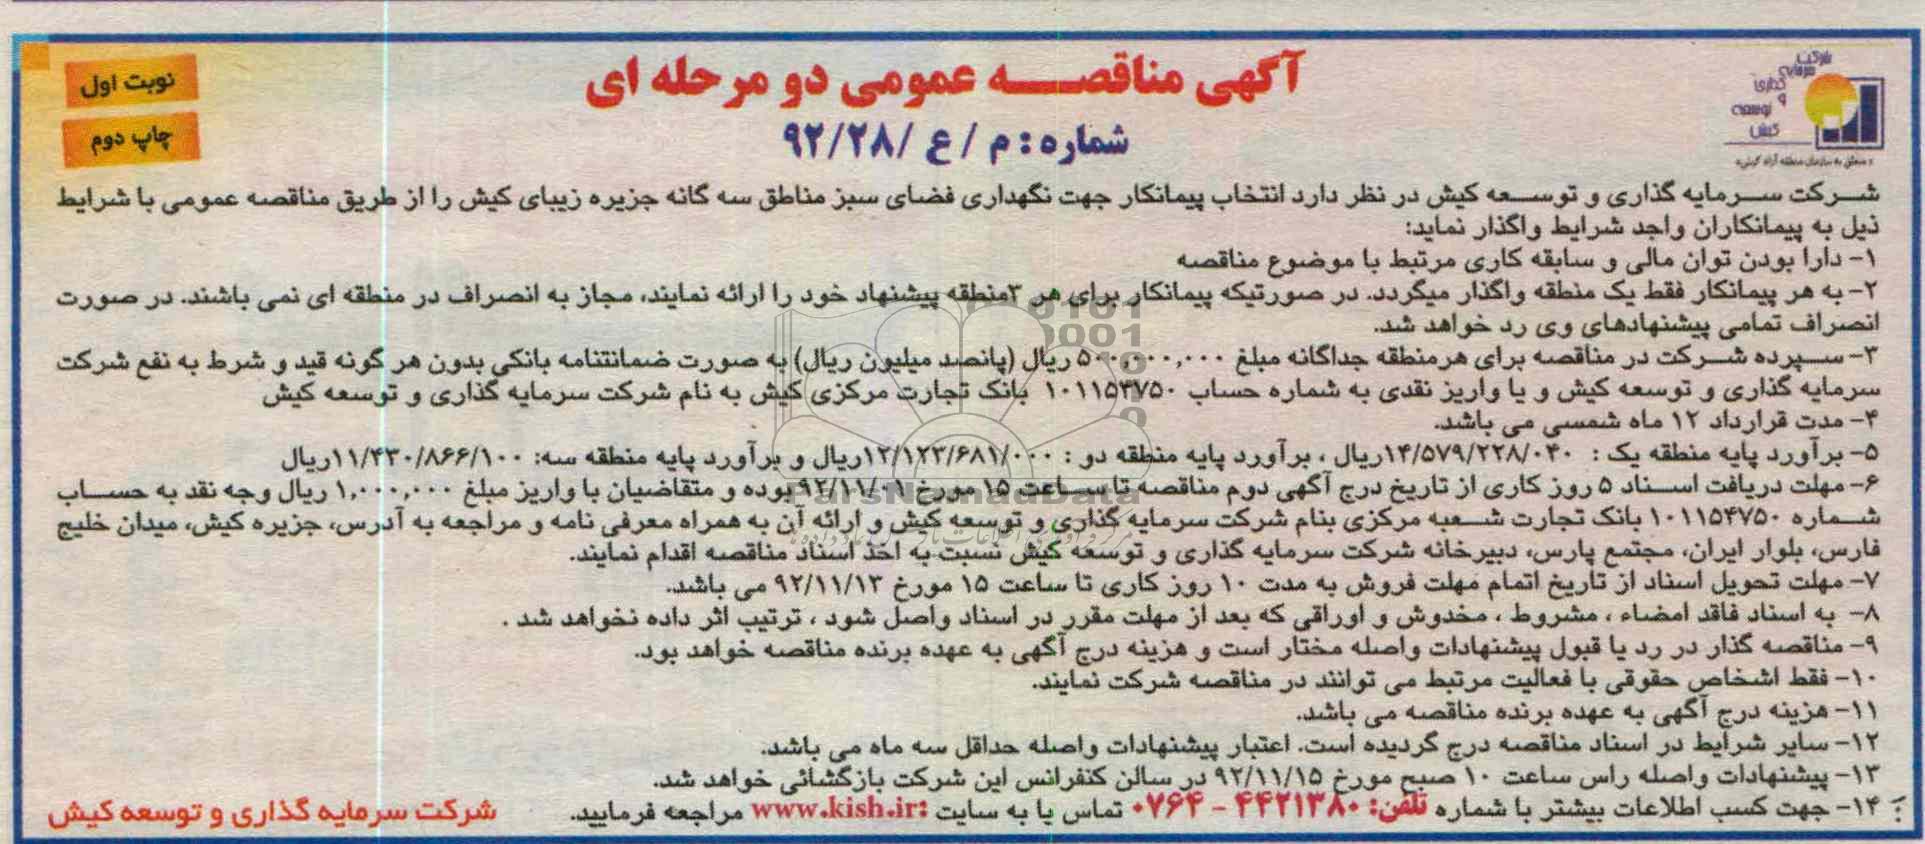 آگهی مناقصه عمومی دو مرحله ای
شماره: م / ع / ۹۲/۲۸
نوبت اول
چاپ دوم
شرکت
سرمایه
گذاری
و
توسعه
کیش
« متعلق به سازمان منطقه آزاد کیش »
شرکت سرمایه گذاری و توسعه کیش در نظر دارد انتخاب پیمانکار جهت نگهداری فضای سبز مناطق سه گانه جزیره زیبای کیش را از طریق مناقصه عمومی با شرایط
ذیل به پیمانکاران واجد شرایط واگذار نماید:
۱- دارا بودن توان مالی و سابقه کاری مرتبط با موضوع مناقصه
۲- به هر پیمانکار فقط یک منطقه واگذار میگردد. در صورتیکه پیمانکار برای هر ۳منطقه پیشنهاد خود را ارائه نمایند، مجاز به انصراف در منطقه ای نمی باشند. در صورت
انصراف تمامی پیشنهادهای وی رد خواهد شد.
۳- سپرده شرکت در مناقصه برای هرمنطقه جداگانه مبلغ ۵۰۰,۰۰۰,۰۰۰ ریال (پانصد میلیون ریال) به صورت ضمانتنامه بانکی بدون هر گونه قید و شرط به نفع شرکت
سرمایه گذاری و توسعه کیش و یا واریز نقدی به شماره حساب ۱۰۱۱۵۴۷۵۰ بانک تجارت مرکزی کیش به نام شرکت سرمایه گذاری و توسعه کیش
۴- مدت قرارداد ۱۲ ماه شمسی می باشد.
۵- برآورد پایه منطقه یک : ۱۴/۵۷۹/۲۲۸/۰۴۰ریال ، برآورد پایه منطقه دو : ۱۲/۱۲۳/۶۸۱/۰۰۰ریال و برآورد پایه منطقه سه: ۱۱/۴۳۰/۸۶۶/۱۰۰ریال
۶- مهلت دریافت اسناد ۵ روز کاری از تاریخ درج آگهی دوم مناقصه تا ساعت ۱۵ مورخ ۹۲/۱۱/۰۱ بوده و متقاضیان با واریز مبلغ ۱,۰۰۰,۰۰۰ ریال وجه نقد به حساب
شماره ۱۰۱۱۵۴۷۵۰ بانک تجارت شعبه مرکزی بنام شرکت سرمایه گذاری و توسعه کیش و ارائه آن به همراه معرفی نامه و مراجعه به آدرس، جزیره کیش، میدان خلیج
فارس، بلوار ایران، مجتمع پارس، دبیرخانه شرکت سرمایه گذاری و توسعه کیش نسبت به اخذ اسناد مناقصه اقدام نمایند.
۷- مهلت تحویل اسناد از تاریخ اتمام مهلت فروش به مدت ۱۰ روز کاری تا ساعت ۱۵ مورخ ۹۲/۱۱/۱۳ می باشد.
۸- به اسناد فاقد امضاء ، مشروط ، مخدوش و اوراقی که بعد از مهلت مقرر در اسناد واصل شود ، ترتیب اثر داده نخواهد شد .
۹- مناقصه گذار در رد یا قبول پیشنهادات واصله مختار است و هزینه درج آگهی به عهده برنده مناقصه خواهد بود.
۱۰- فقط اشخاص حقوقی با فعالیت مرتبط می توانند در مناقصه شرکت نمایند.
۱۱- هزینه درج آگهی به عهده برنده مناقصه می باشد.
۱۲- سایر شرایط در اسناد مناقصه درج گردیده است. اعتبار پیشنهادات واصله حداقل سه ماه می باشد.
۱۳- پیشنهادات واصله راس ساعت ۱۰ صبح مورخ ۹۲/۱۱/۱۵ در سالن کنفرانس این شرکت بازگشائی خواهد شد.
۱۴- جهت کسب اطلاعات بیشتر با شماره تلفن: ۴۴۲۱۳۸۰ - ۰۷۶۴ تماس یا به سایت www.kish.ir: مراجعه فرمایید.
شرکت سرمایه گذاری و توسعه کیش
ParsNamadData